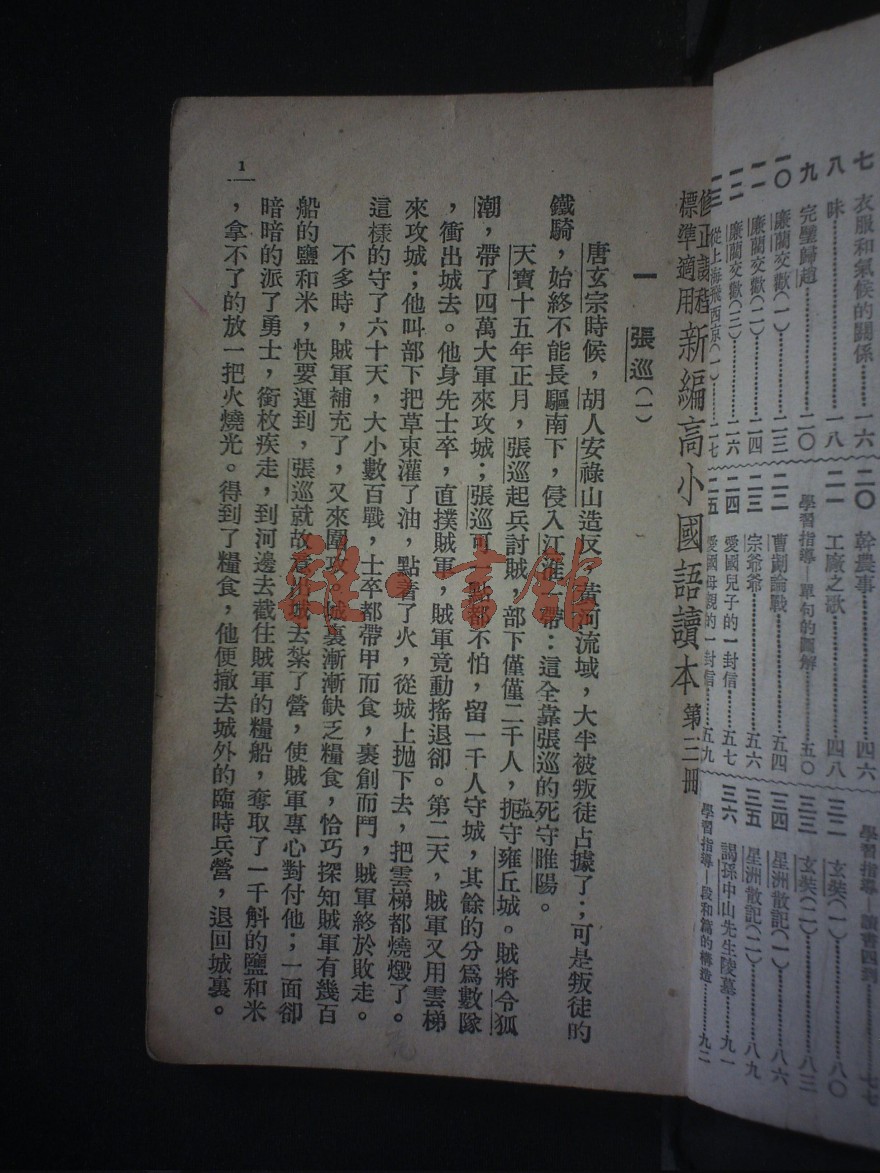 七 衣服和氣候的關係………一六
八 味………一八
九 完璧歸趙………二〇
一〇 廉藺交歡(一)………二三
一一 廉藺交歡(二)………二四
一二 廉藺交歡(三)………二六
一三 從上海飛西京(一)………二七
二〇 幹農事………四六
二一 工廠之歌………四八
學習指導—單句的圖解………五〇
二二 曹劌論戰………五四
二三 宗爺爺………五六
二四 愛國兒子的一封信………五七
二五 愛國母親的一封信………五九
學習指導—讀書四到………七七
三二 玄奘(一)………八〇
三三 玄奘(二)………八三
三四 星洲散記(一)………八六
三五 星洲散記(二)………八九
三六 謁孫中山先生陵墓………九一
學習指導—段和篇的構造………九二
修正課程標準適用 新編高小國語讀本 第三冊
一 張巡(一)
唐玄宗時候,胡人安祿山造反,黃河流域,大半被叛徒占據了;可是叛徒的
鐵騎,始終不能長驅南下,侵入江淮一帶:這全靠張巡的死守睢陽。
天寶十五年正月,張巡起兵討賊,部下僅僅二千人,扼守雍丘城。賊將令狐
潮,帶了四萬大軍來攻城;張巡可一點都不怕,留一千人守城,其餘的分爲數隊
,衝出城去。他身先士卒,直撲賊軍,賊軍竟動搖退卻。第二天,賊軍又用雲梯
來攻城;他叫部下把草束灌了油,點着了火,從城上拋下去,把雲梯都燒燬了。
這樣的守了六十天,大小數百戰,士卒都帶甲而食,裹創而鬥,賊軍終於敗走。
不多時,賊軍補充了,又來圍攻。城裏漸漸缺乏糧食,恰巧探知賊軍有幾百
船的鹽和米,快要運到,張巡就故意出城去紮了營,使賊軍專心對付他;一面卻
暗暗的派了勇士,銜枚疾走,到河邊去截住賊軍的糧船,奪取了一千斛的鹽和米
,拿不了的放一把火燒光。得到了糧食,他便撤去城外的臨時兵營,退回城裏。
1
雜·書館